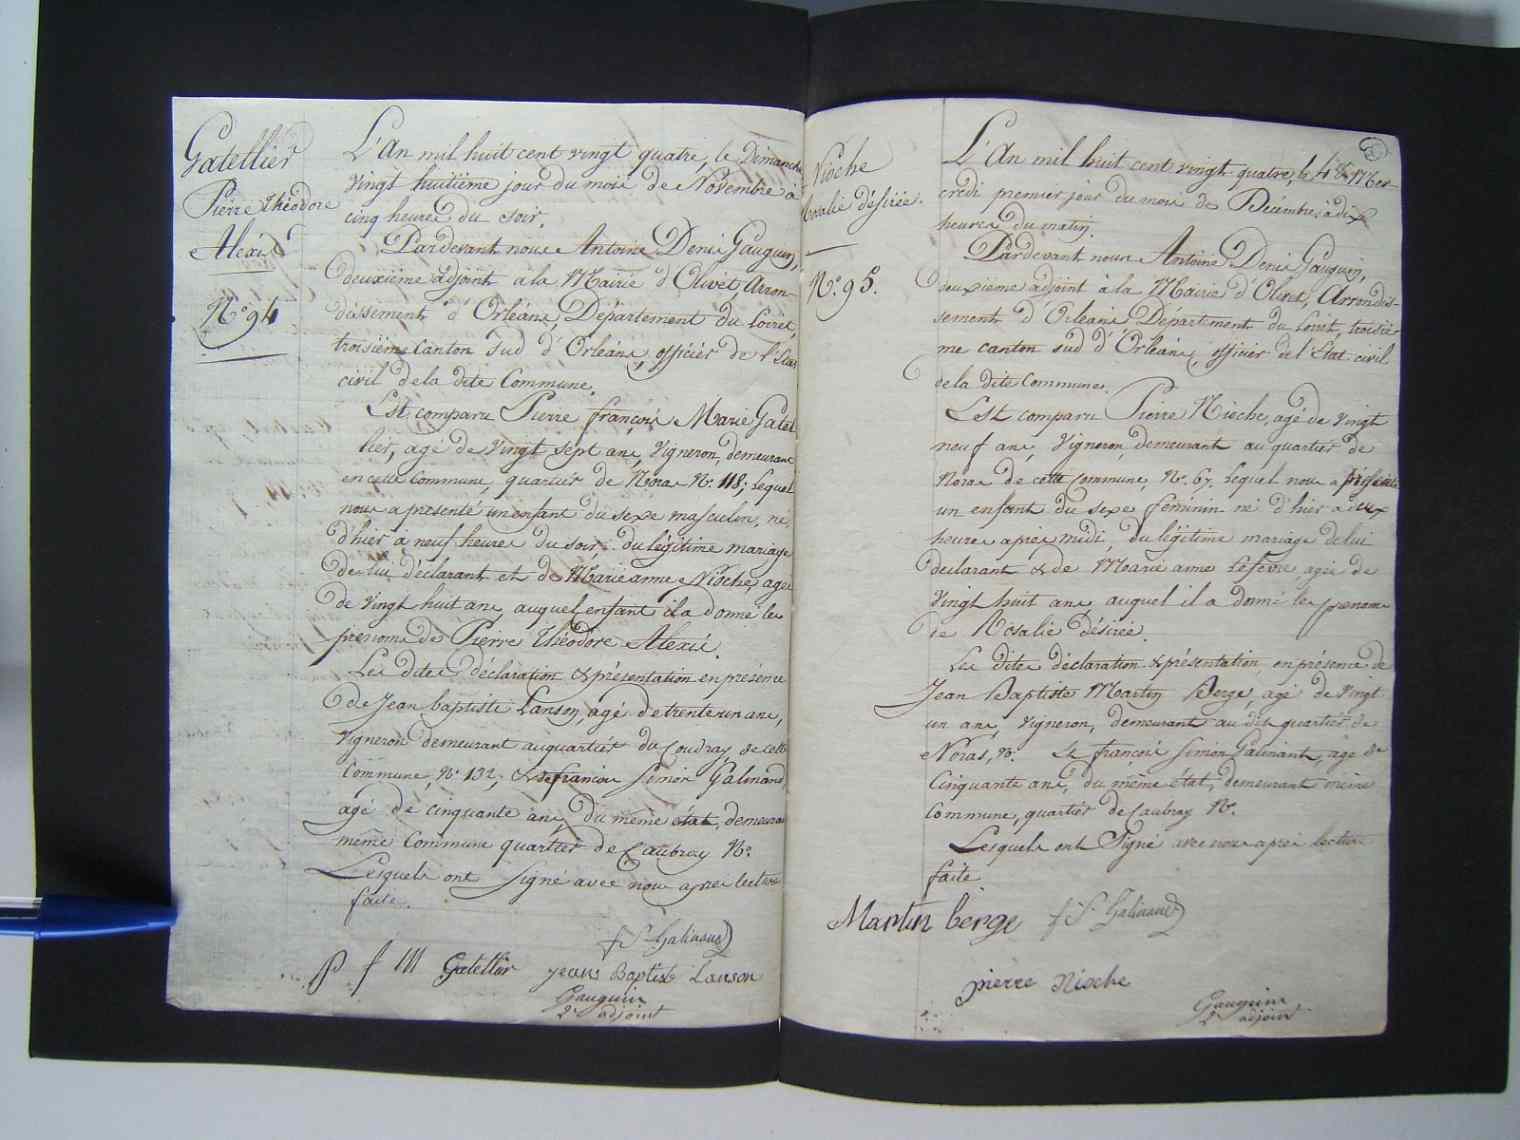 Gatellier
Pierre Théodore
Alexis
N.º 94
L'An mil huit cent vingt quatre, le Dimanche
vingt huitième jour du mois de Novembre à
cinq heures du soir.
Pardevant nous Antoine Denis Gauguin,
deuxième adjoint à la Mairie d'Olivet, Arron-
dissement d'Orléans, Département du Loiret,
troisième Canton Sud d'Orléans, officier de l'Etat
civil de la dite Commune.
Est comparu Pierre françois Marie Gatel-
lier, agé de vingt sept ans, Vigneron, demeurant
en cette Commune, quartier de Noras N.º 118; lequel
nous a présenté un enfant du sexe masculin, né
d'hier à neuf heures du soir, du légitime mariage
de lui déclarant et de Marie anne Nioche, agée
de vingt huit ans, auquel enfant il a donné les
prenoms de Pierre Théodore Alexis.
Les dites déclaration & présentation en présence
de Jean baptiste Lanson, agé de trente un ans,
Vigneron demeurant au quartier du Coudray, de cette
Commune, N.º 132; & de françois Simon Galinand,
agé de cinquante ans, du même état, demeurant
même Commune quartier de Caubray N.º
Lesquels ont signé avec nous après lecture
faite.
f S Galinand
p f m Gatellier jean Baptiste Lanson
Gauguin
2e adjoint
Nioche
Rosalie désirée.
N.º 95.
L'An mil huit cent vingt quatre, le Mer-
credi premier jour du mois de Décembre, à dix
heures du matin.
Pardevant nous Antoine Denis Gauguin,
deuxième adjoint à la Mairie d'Olivet, Arrondis-
sement d'Orléans Département du Loiret, troisiè-
me canton sud d'Orléans, officier de l'Etat civil
de la dite Commune.
Est comparu Pierre Nioche, agé de vingt
neuf ans, Vigneron, demeurant au quartier de
Noras de cette Commune, N.º 67, lequel nous a présenté
un enfant du sexe féminin né d'hier à deux
heures après midi, du légitime mariage de lui
déclarant & de Marie anne Lefevre agée de
vingt huit ans, auquel il a donné les prenoms
de Rosalie désirée.
Les dites déclaration & présentation, en présence de
Jean Baptiste Martin Berge, agé de vingt
un ans, Vigneron, demeurant au dit quartier de
Noras, N.º & françois Simon Galinant, agé de
Cinquante ans, du même état, demeurant même
Commune, quartier de Caubray N.º
Lesquels ont Signé avec nous après lecture
faite
Martin berge f S Galinand
pierre nioche
Gauguin
2e adjoint